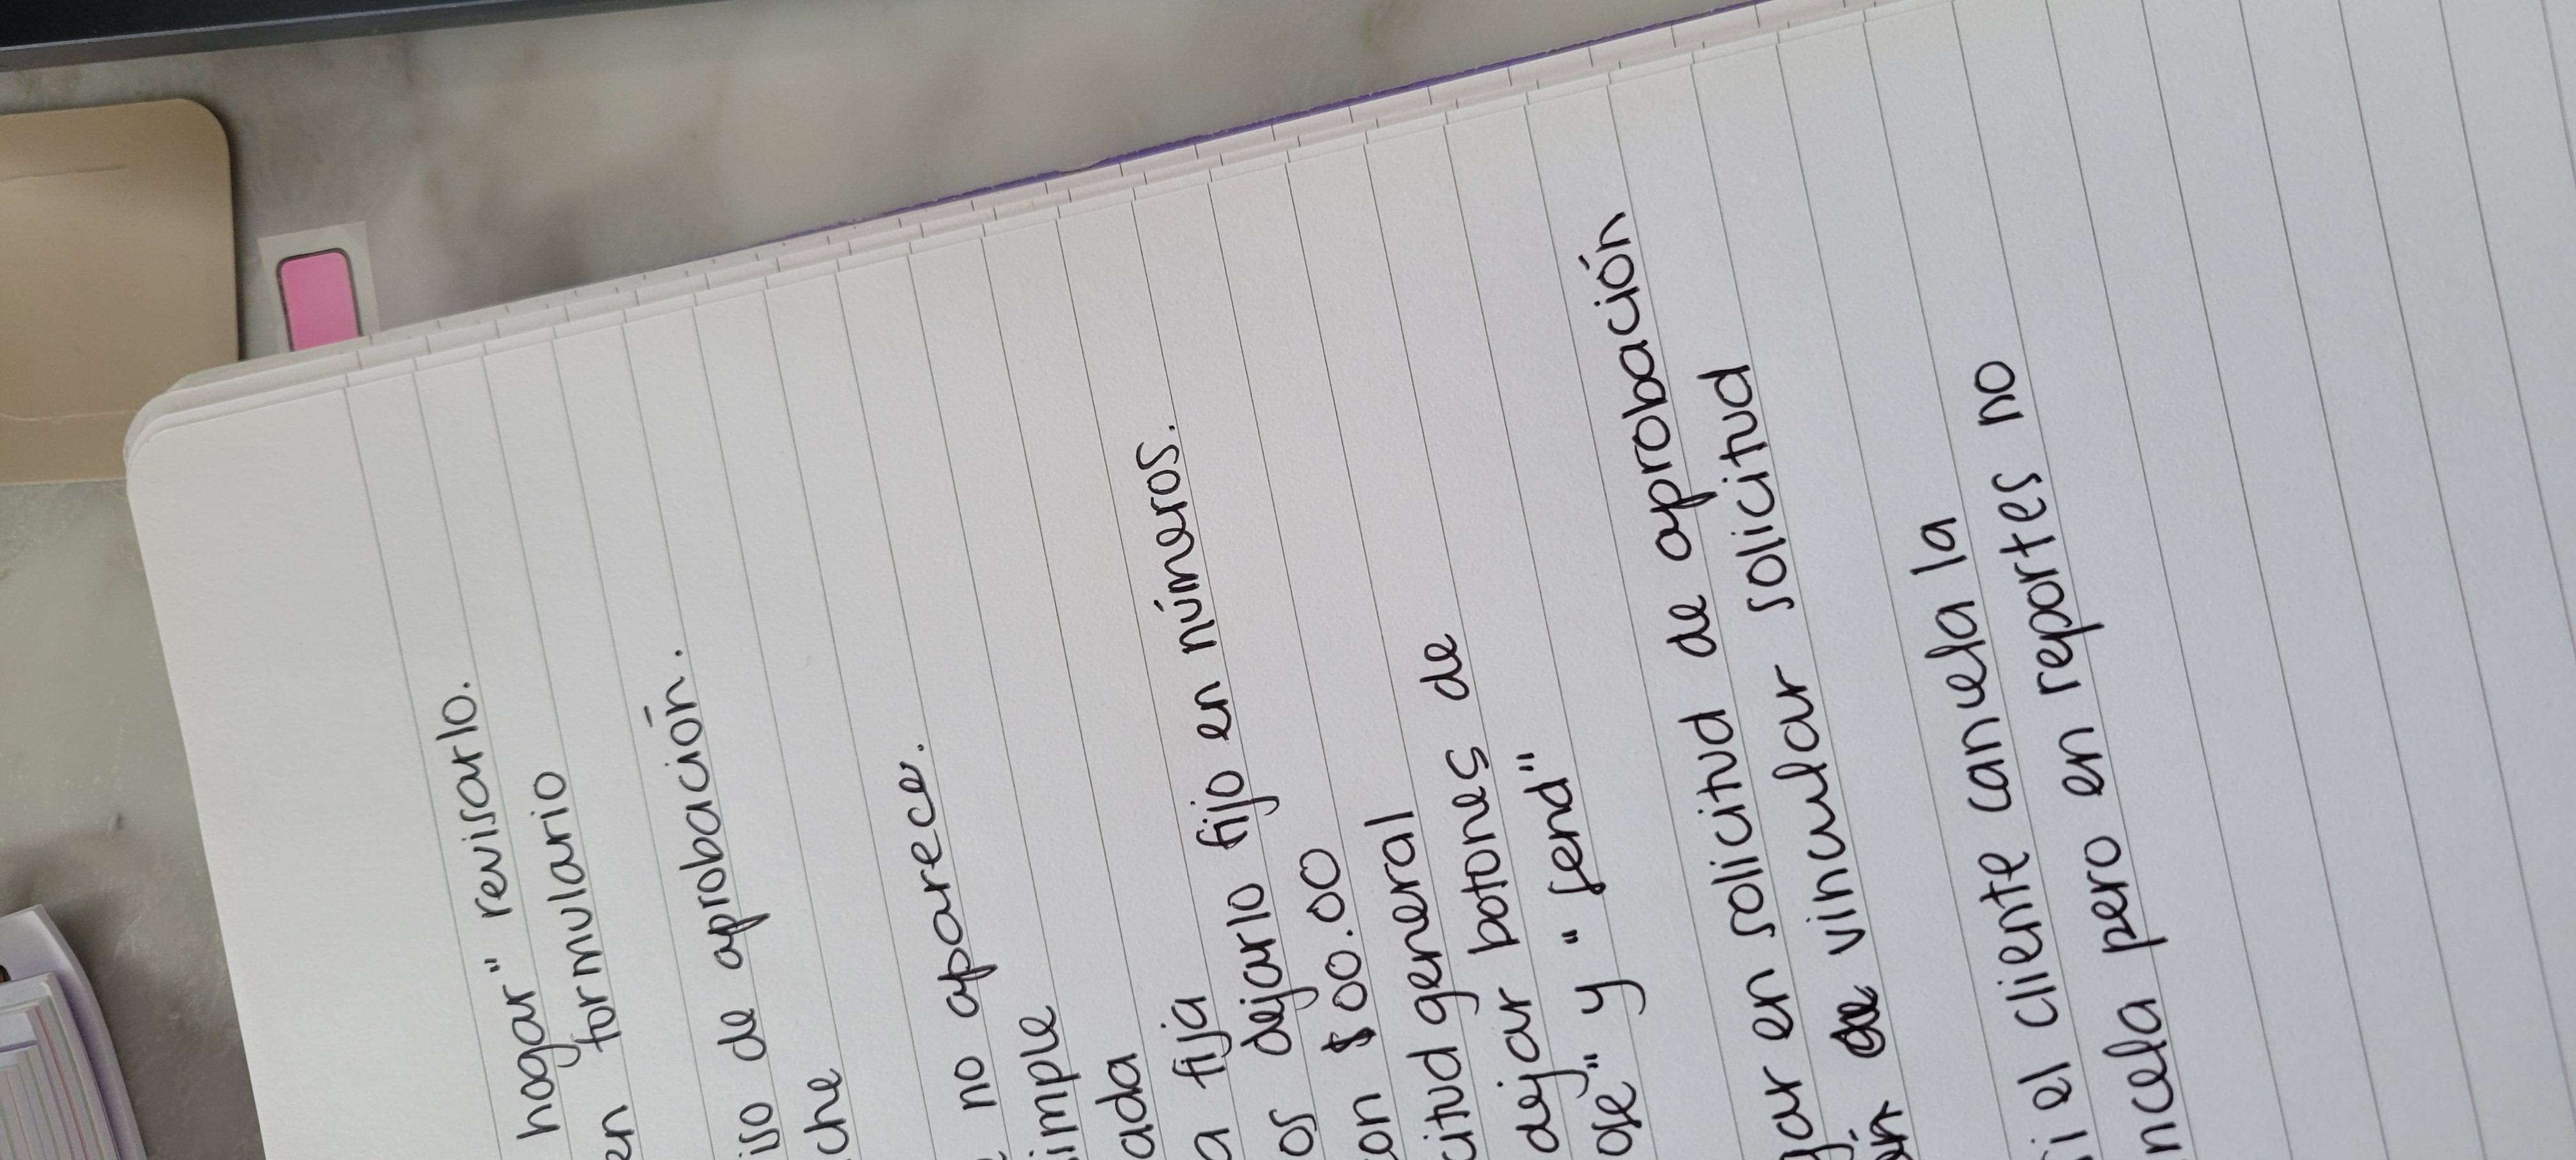 hogar" revisarlo.
en formulario
iso de aprobación.
che
no aparece.
simple
ada
a fija
os dejarlo fijo en números.
on $00.00
citud general
dejar botones de
ose" y "send"
gar en solicitud de aprobación
ón de vincular solicitud
si el cliente cancela la
ncela pero en reportes no